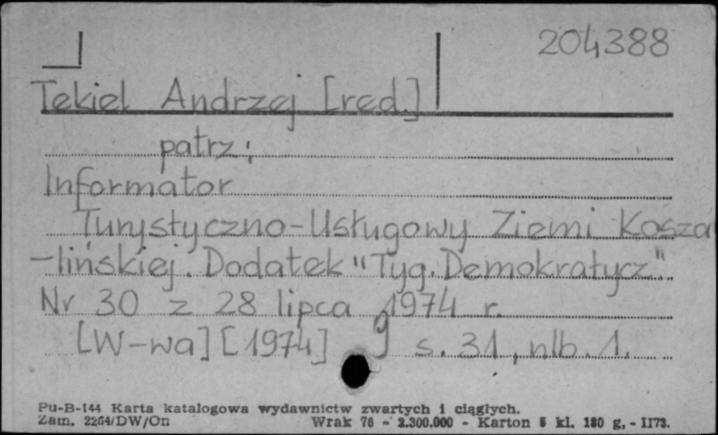 204388
Tekiel Andrzej [red.]
patrz:
Informator
Turystyczno-Usługowy Ziemi Kosza
-lińskiej. Dodatek "Tyg. Demokratycz".
Nr 30 z 28 lipca 1974 r.
[W-wa] [1974] s. 31, nlb. 1.
Pu-B-144 Karta katalogowa wydawnictw zwartych i ciągłych.
Zam. 2264/DW/On Wrak 76 - 2.300.000 - Karton 5 kl. 180 g, - II73.